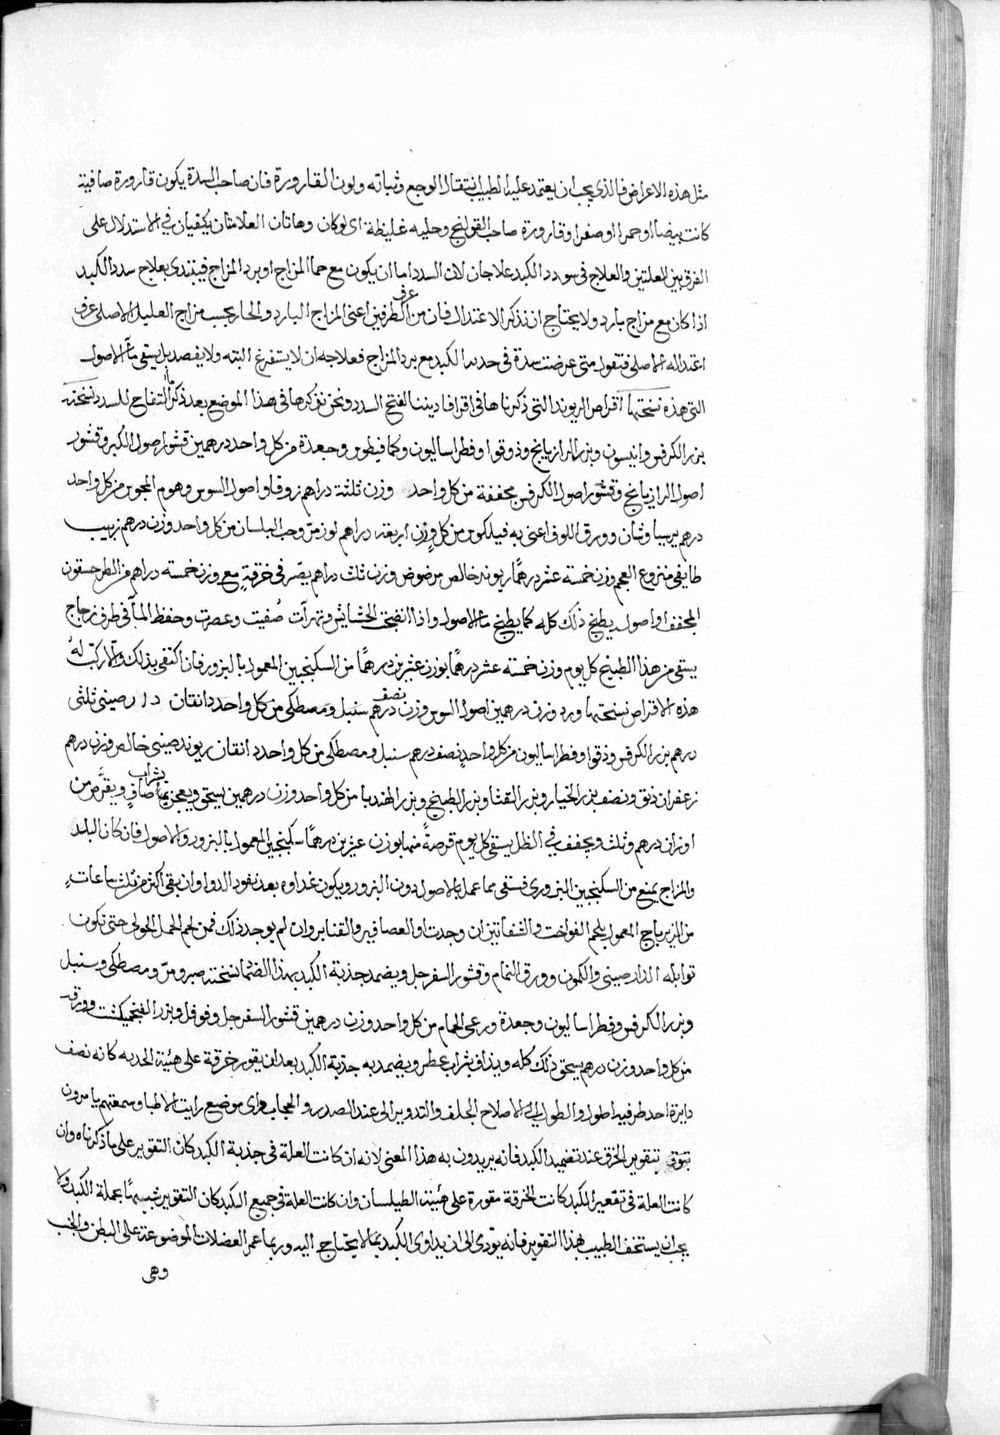 مثل هذه الاعراض فالذى يجب ان يعتمد عليه الطبيب انتقال الوجع وثباته ولون القارورة فان صاحب السدة يكون قارورة صافية
كانت بيضا او حمرا او صفرا وقارورة صاحب القولنج وحليه غليظة اى لو كان وهاتان العلامتان يكفيان فى الاستدلال على
الفرق بين العلتين والعلاج فى سدد الكبد علاجان لان السدد اما ان يكون مع حما المزاج او برد المزاج فيبتدى بعلاج سدد الكبد
اذا كان مع مزاج بارد ولا يحتاج ان نذكر الاعتدال فان من عرف الطرفين اعنى المزاج البارد والحار يحسب مزاج العليل الاصلى عرف
اعتداله الاصلى فنقول متى عرضت سدة فى حدبة الكبد مع برد المزاج فعلاجه ان لا يستفرغ البته ولا يفصد بل يسقى ما الاصول
التى هذه نسختها اقراص الريوند التى ذكرناها فى اقرافادينا لفتح السدد ونحن نذكرها فى هذا الموضع بعد ذكر التفاح للسدد نسخته
بزر الكرفس وانيسون وبزر الرازيانج وذوقوا وفطراساليون وكمافيطوس وجعدة من كل واحد درهمين قشور اصول الكبر وقشور
اصول الرازيانج وقشور اصول الكرفس مجففة من كل واحد وزن ثلثة دراهم زوفا واصول السوس وهوم المجوس من كل واحد
درهم برسياوشان وورق اللوف اعنى به فيلكوس من كل وزن اربعة دراهم لوز مر وحب البلسان من كل واحد وزن درهم زبيب
طايفى منزوع العجم وزن خمسة عشر درهما ريوند خالص مرضوض وزن ثلث دراهم يصر فى خرقة مع وزن خمسة دراهم من الطرحسقون
المجفف او اصوله يطبخ ذلك كله كما يطبخ ما الاصول واذا انفتحت الحشايش وتهرات صفيت وعصرت وحفظ الما فى ظرف زجاج
يسقى من هذا الطبيخ كل يوم وزن خمسة عشر درهما بوزن عشرين درهما من السكنجبين المعمول بالبزور فان اكتفى بذلك والا ركب له
هذه الاقراص نسختها ورد وزن درهمين اصول السوس وزن نصف درهم سنبل ومصطكى من كل واحد دانقان دارصينى ثلثى
درهم بزر الكرفس وذقوا وفطراساليون من كل واحد نصف درهم سنبل ومصطكى من كل واحد دانقان ريوند صينى خالص وزن درهم
زعفران دنق ونصف بزر الخيار وبزر القثا وبزر البطيخ وبزر الهندبا من كل واحد وزن درهمين يسحق ويعجن بشراب صاف ويقرص من
اوزان درهم وثلث ويجفف فى الظل يسقى كل يوم قرصة منها بوزن عشرين درهما سكنجبين المعمول بالبزور والاصول فان كان البلد
والمزاج يمنع من السكنجبين البزورى فسقى مما عمل بالاصول دون البزور ويكون غداوه بعد نفوذ الدوا وان بقى اكثر من ثلث ساعات
من الزيرباج المعمول بلحم الفواخت والشفانين ان وجدت او العصافير والقنابر وان لم يوجد ذلك فمن لحم الحمل الحولى حتى تكون
توابله الدارصينى والكمون وورق النمام وقشور السفرجل ويضمد حدبة الكبد بهذا الضماد نسخته صبر ومر ومصطكى وسنبل
وبزر الكرفس وفطراساليون وجعدة ورعى الحمام من كل واحد وزن درهمين قشور السفرجل وفوفل وبزر الفنجنكشت وورقه
من كل واحد وزن درهم يسحق ذلك كله ويذاف بشراب عطر ويضمد به حدبة الكبد بعد ان يقور خرقة على هيئة الحدبه كانه نصف
دايرة احد طرفيه اطول والطول الى الاصلاح الخلف والتدوير الى عند الصدر والحجاب واى موضع رايت الاطبا وسمعتهم يامرون
بتقوير الخرق عند تضميد الكبد فانه يريدون به هذا المعنى لانه ان كانت العلة فى حدبة الكبد كان التقوير على ما ذكرناه وان
كانت العلة فى تقعير الكبد كانت الخرقة مقورة على هيئة الطيلسان وان كانت العلة فى جميع الكبد كان التقوير شبيها بجملة الكبد ولا
يجب ان يستخف الطبيب بهذا التقوير فانه يودى الى ان يداوى الكبد بما لا يحتاج اليه وربما عمر العضلات الموضوعة على البطن والجنب
وهى